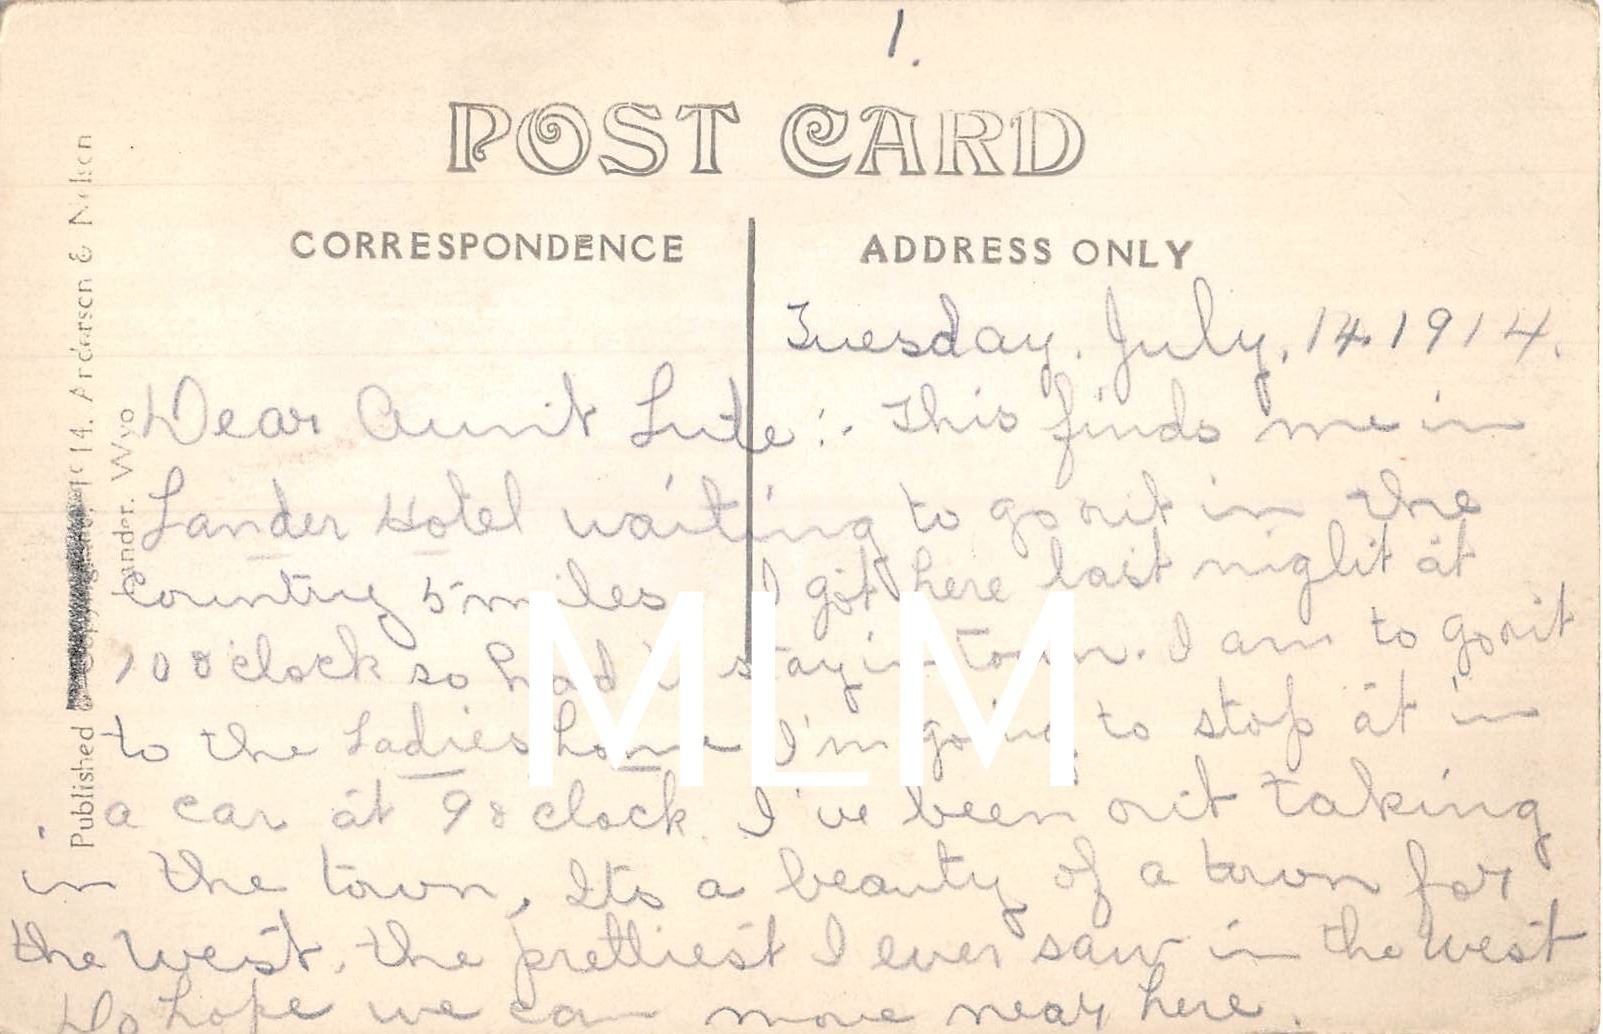 1.
POST CARD
CORRESPONDENCE
ADDRESS ONLY
Published & Copyrighted, 1914. Anderson & Nelson
Lander. Wyo
Tuesday. July, 14. 1914.
Dear Aunt Lute:. This finds me in
Lander Hotel waiting to go out in the
Country 5 miles I got here last night at
10 o'clock so had to stay in town. I am to go out
to the Ladies home I'm going to stop at in
a car at 9 o'clock. I've been out taking
in the town, Its a beauty of a town for
the West. the prettiest I ever saw in the West
Do hope we can move near here.
MLM